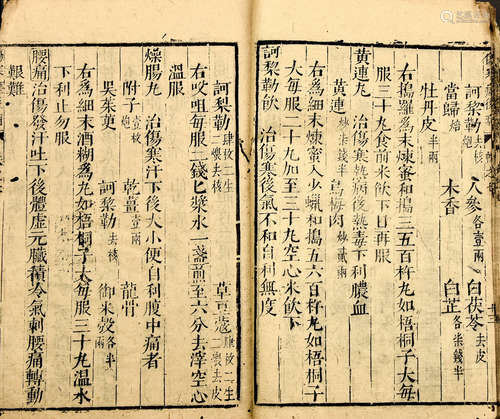 訶黎勒炮去核 人參各壹兩 白茯苓去皮
當歸 木香 白芷各柒錢半
牡丹皮半兩
右搗羅爲末煉蜜和搗三五百杵丸如梧桐子大每
服三十丸食前米飲下日再服
黃連丸 治傷寒熱病後熱毒下利膿血
黃連 烏梅肉炒貳兩
右爲細末煉蜜入少蠟和搗五六百杵丸如梧桐子
大每服二十丸加至三十丸空心米飲下
訶黎勒飲 治傷寒後氣不和自利無度
訶黎勒肆枚二生二煨去核 草豆蔻肆枚二生二煨去皮
右㕮咀每服二錢匕漿水一盞煎至六分去滓空心
溫服
燥腸丸 治傷寒汗下後大小便自利腹中痛者
附子炮壹枚 乾薑壹兩 龍骨
吳茱萸 訶黎勒去核 御米殼各半兩
右爲細末酒糊爲丸如梧桐子大每服三十丸溫水
下利止勿服
腰痛治傷發汗吐下後體虛元臟積冷氣刺腰痛轉動
艱難